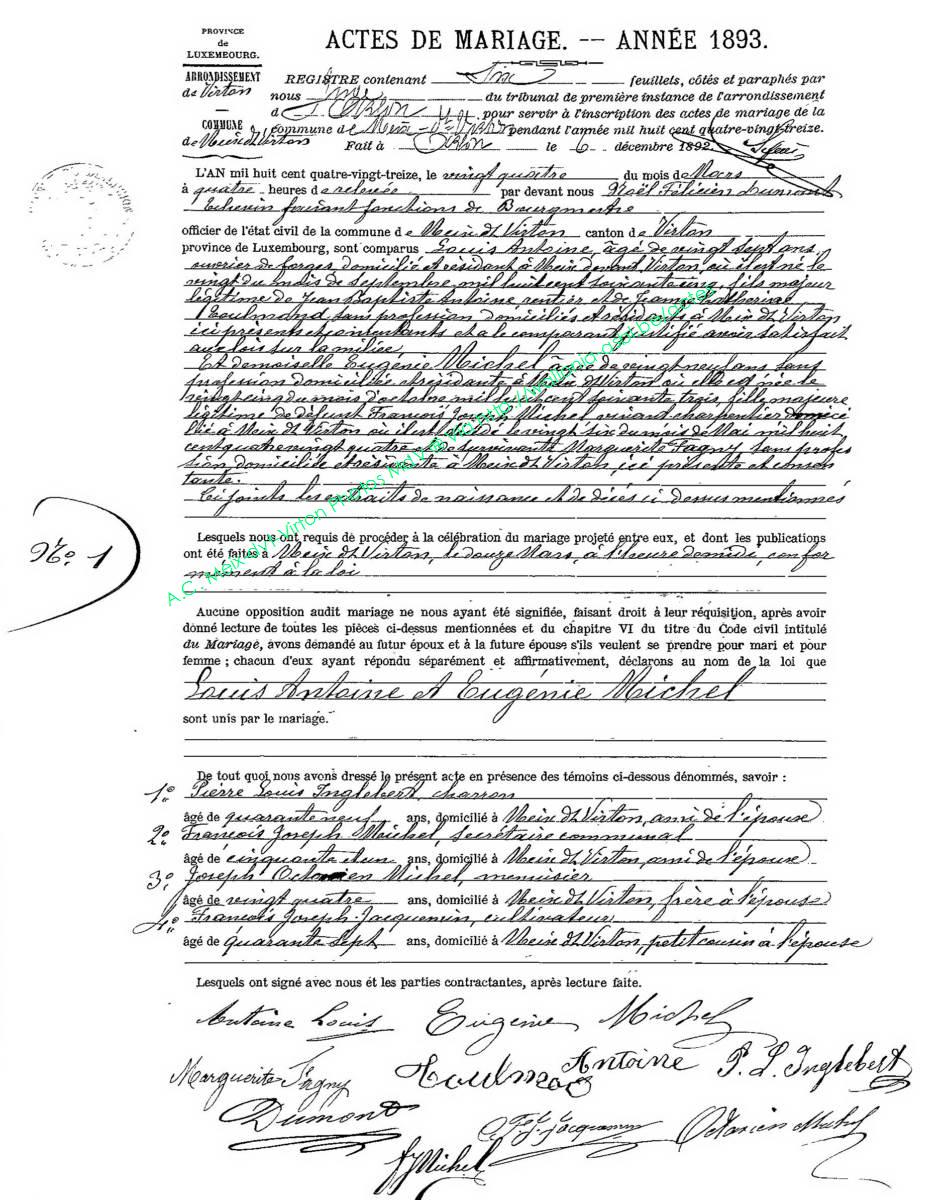 PROVINCE
de
LUXEMBOURG.
ARRONDISSEMENT
de Virton
COMMUNE
de Meix dt Virton
ACTES DE MARIAGE. -- ANNÉE 1893.
REGISTRE contenant Six feuillets, côtés et paraphés par
nous juge du tribunal de première instance de l'arrondissement
d'Arlon pour servir à l'inscription des actes de mariage de la
commune de Meix-dt-Virton pendant l'année mil huit cent quatre-vingt-treize.
Fait à Arlon le 6 décembre 1892.
L'AN mil huit cent quatre-vingt-treize, le vingt quatre du mois de Mars
à quatre heures de relevée par devant nous Noël Félicien Dumont
Echevin faisant fonctions de Bourgmestre
officier de l'état civil de la commune de Meix dt Virton canton de Virton
province de Luxembourg, sont comparus Louis Antoine, âgé de vingt sept ans
ouvrier de forges domicilié et résidant à Meix devant Virton, où il est né le
vingt du mois de septembre mil huit cent soixante cinq, fils majeur
légitime de Jean Baptiste Antoine rentier et de Jeanne Catherine
Toulmond, sans profession domiciliés et résidant à Meix dt Virton
ici présents et consentants et a le comparant justifié avoir satisfait
aux lois sur la milice
Et demoiselle Eugénie Michel âgée de vingt neuf ans sans
profession domiciliée et résidante à Meix dt Virton où elle est née le
vingt cinq du mois d'octobre mil huit cent soixante trois, fille majeure
légitime de défunt François Joseph Michel vivant charpentier domici
lié à Meix dt Virton où il est décédé le vingt six du mois de Mai mil huit
cent quatre vingt quatre et de survivante Marguerite Fagny sans profes
sion domiciliée et résidante à Meix dt Virton, ici présente et consen
tante.
Ci joints les extraits de naissance et de décès ci dessus mentionnés
N° 1
Lesquels nous ont requis de procéder à la célébration du mariage projeté entre eux, et dont les publications
ont été faites à Meix dt Virton, le douze Mars, à l'heure de midi, confor
mément à la loi
Aucune opposition audit mariage ne nous ayant été signifiée, faisant droit à leur réquisition, après avoir
donné lecture de toutes les pièces ci-dessus mentionnées et du chapitre VI du titre du Code civil intitulé
du Mariage, avons demandé au futur époux et à la future épouse s'ils veulent se prendre pour mari et pour
femme ; chacun d'eux ayant répondu séparément et affirmativement, déclarons au nom de la loi que
Louis Antoine et Eugénie Michel
sont unis par le mariage.
De tout quoi nous avons dressé le présent acte en présence des témoins ci-dessous dénommés, savoir :
1° Pierre Louis Inglebert, charron
âgé de quarante neuf ans, domicilié à Meix dt Virton, ami de l'épouse
2° François Joseph Michel, secrétaire communal
âgé de cinquante et un ans, domicilié à Meix dt Virton, ami de l'épouse
3° Joseph Octavien Michel, menuisier
âgé de vingt quatre ans, domicilié à Meix dt Virton, frère à l'épouse
4° François Joseph Jacquemin, cultivateur
âgé de quarante sept ans, domicilié à Meix dt Virton, petit cousin à l'épouse
Lesquels ont signé avec nous et les parties contractantes, après lecture faite.
Antoine Louis Eugénie Michel
Marguerite Fagny Toulmond Antoine P. L. Inglebert
Dumont F. J. Jacquemin Octavien Michel
fJMichel
A.C. : Meix dvt Virton